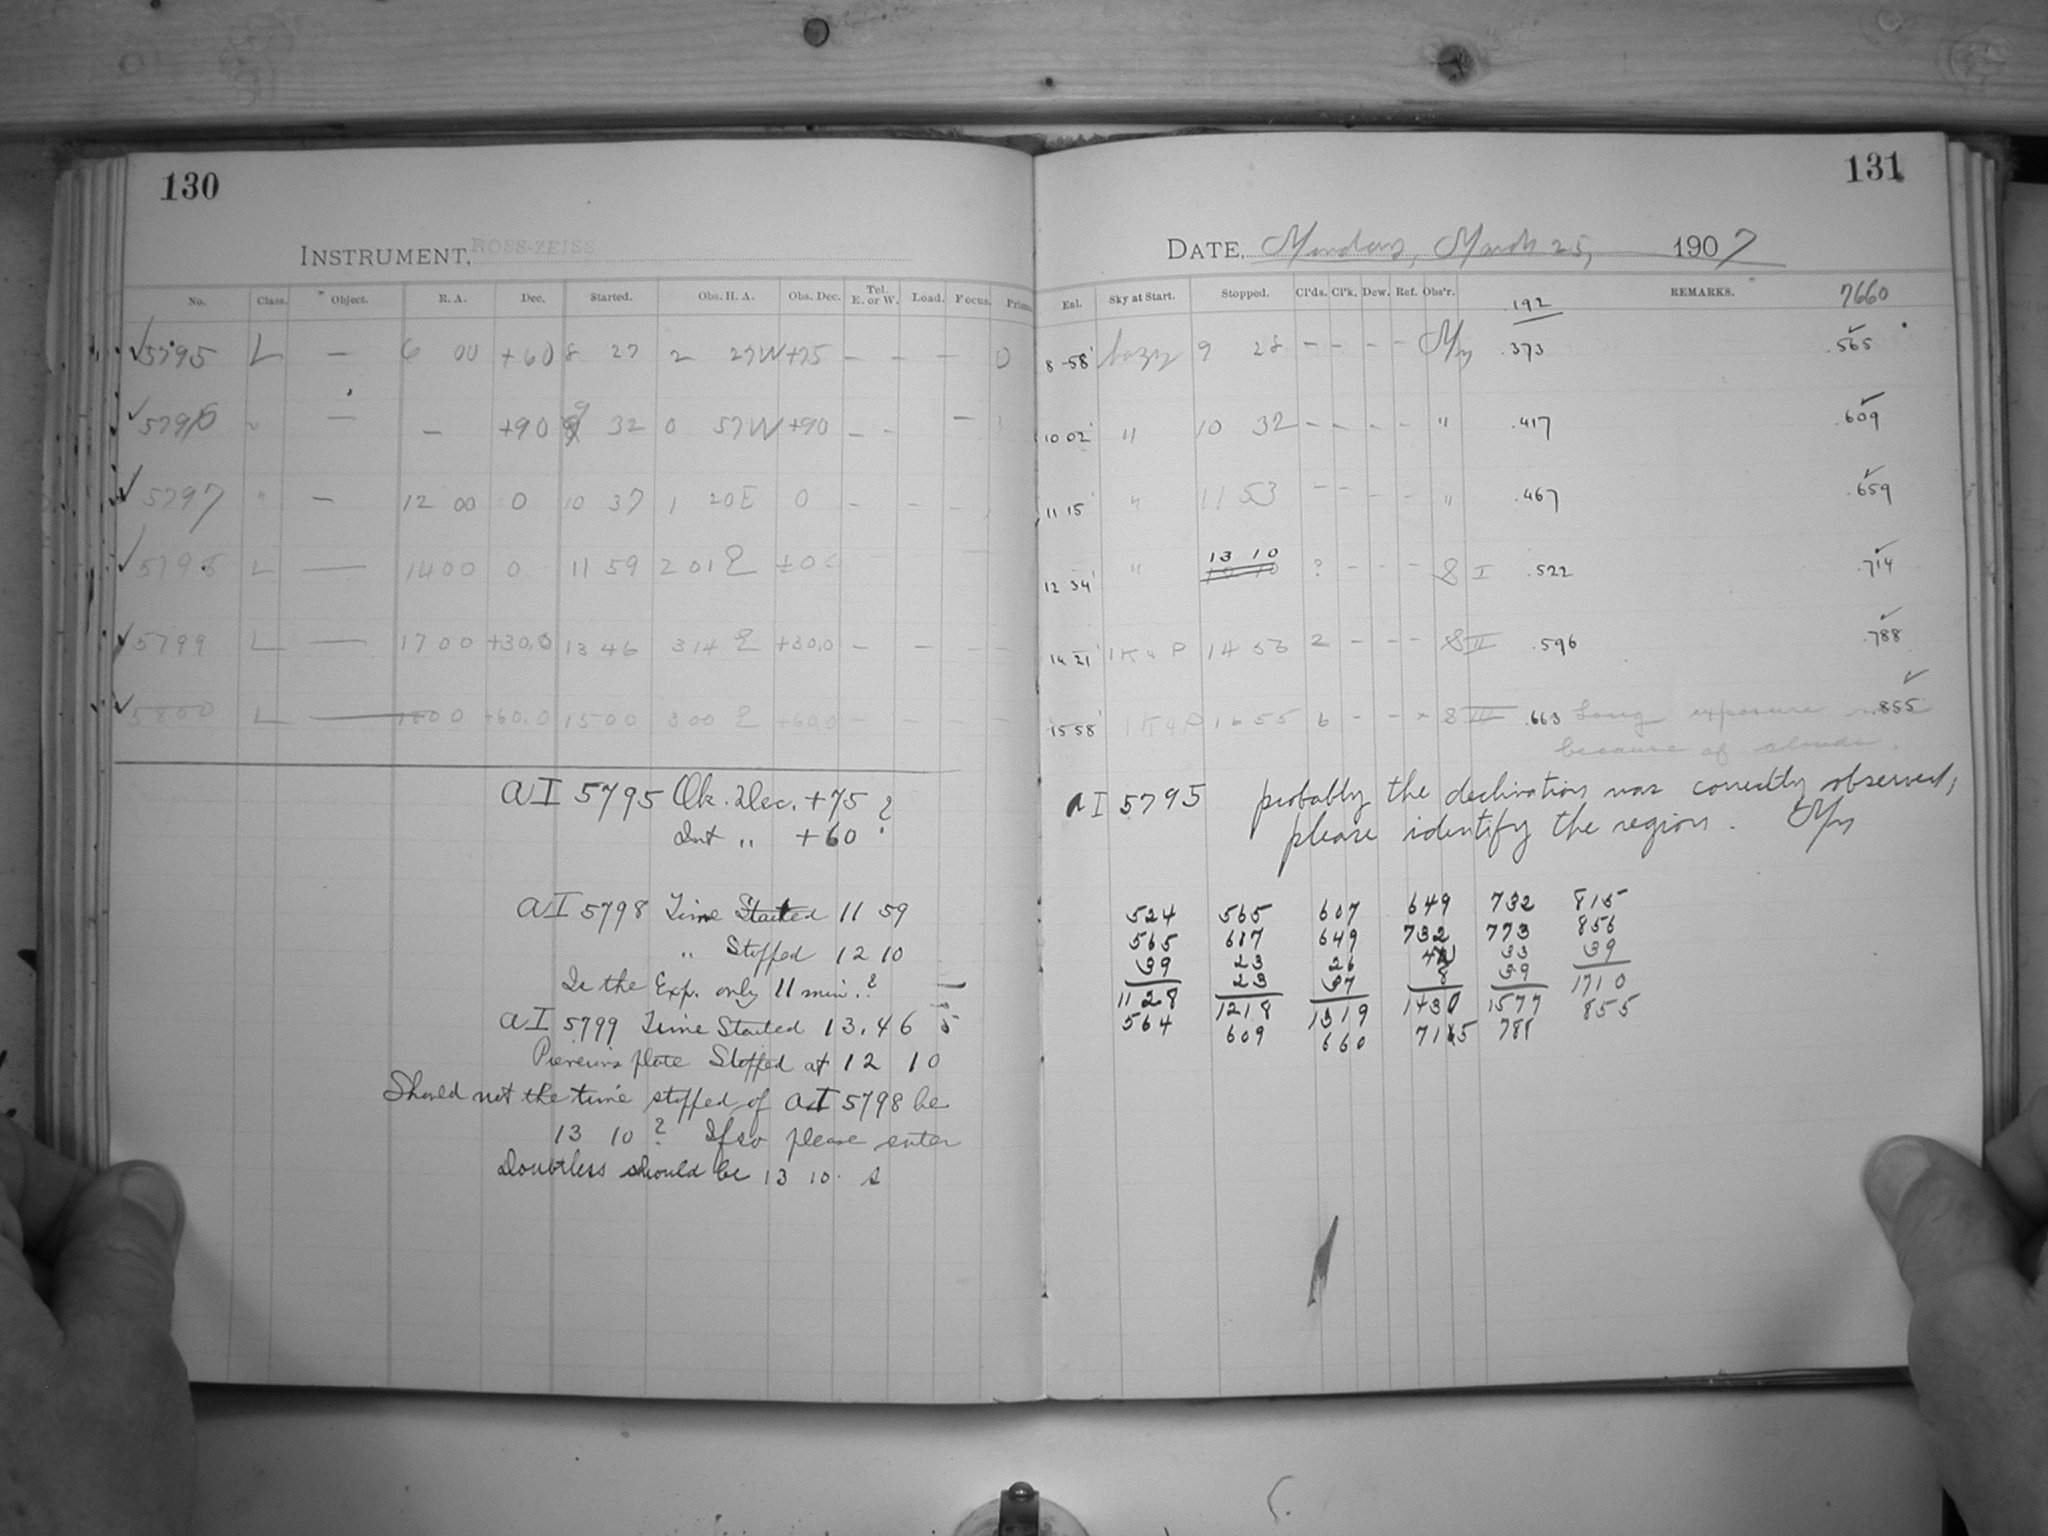 130
INSTRUMENT, ROSS-ZEISS
No. Class. Object. R. A. Dec. Started. Obs. H. A. Obs. Dec. Tel. E. or W. Load. Focus. Prism.
5795 L — 6 00 +60 8 27 2 27W +75 — — — 0
5796 " — — +90 9 32 0 57W +90 — — —
5797 " — 12 00 0 10 37 1 20E 0 — — —
5798 L — 14 00 0 11 59 2 01 E
5799 L — 17 00 +30,0 13 46 3 14 E +30,0 — — — —
5800 L — 1800 +60,0 15 00 3 00 E +60,0 — — — —
AI 5795 Ob. Dec. +75 ?
Int " +60
AI 5798 Time Started 11 59
" Stopped 12 10
Is the Exp. only 11 min.?
AI 5799 Time Started 13.46
Previous plate Stopped at 12 10
Should not the time stopped of AI 5798 be
13 10? If so please enter
Doubtless should be 13 10. S
131
DATE, Monday, March 25, 1907
Eal. Sky at Start. Stopped. Cl'ds. Cl'k. Dew. Ref. Obs'r. REMARKS.
.192 7660
8 58 hazy 9 28 – – – – My .373 .565
10 02 " 10 32 – – – – " .417 .609
11 15 " 11 53 – – – – " .467 .659
12 34 " 13 10 ? – – – S I .522 .714
14 21 14 56 2 – – – S II .596 .788
15 58 16 55 6 – – – S III .663 Long exposure .855
because of clouds.
AI 5795 probably the declination was correctly observed,
please identify the region. My
524 565 607 649 732 815
565 617 649 732 773 856
39 23 26 33 39
23 37 8 39
1128 1218 1319 1430 1577 1710
564 609 660 7165 788 855